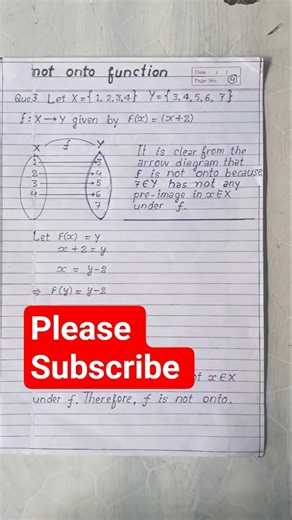 not onto function
Date : / /
Page No. 4
Que3 Let X={1,2,3,4} Y={3,4,5,6,7}
f: X→Y given by f(x)=(x+2)
X f Y
1 3
2 4
3 5
4 6
7
It is clear from the
arrow diagram that
f is not onto because
7∈Y has not any
pre-image in x∈X
under f.
Let f(x) = y
x+2 = y
x = y-2
⇒ f(y) = y-2
Please
Subscribe
x∈X
under f. Therefore, f is not onto.